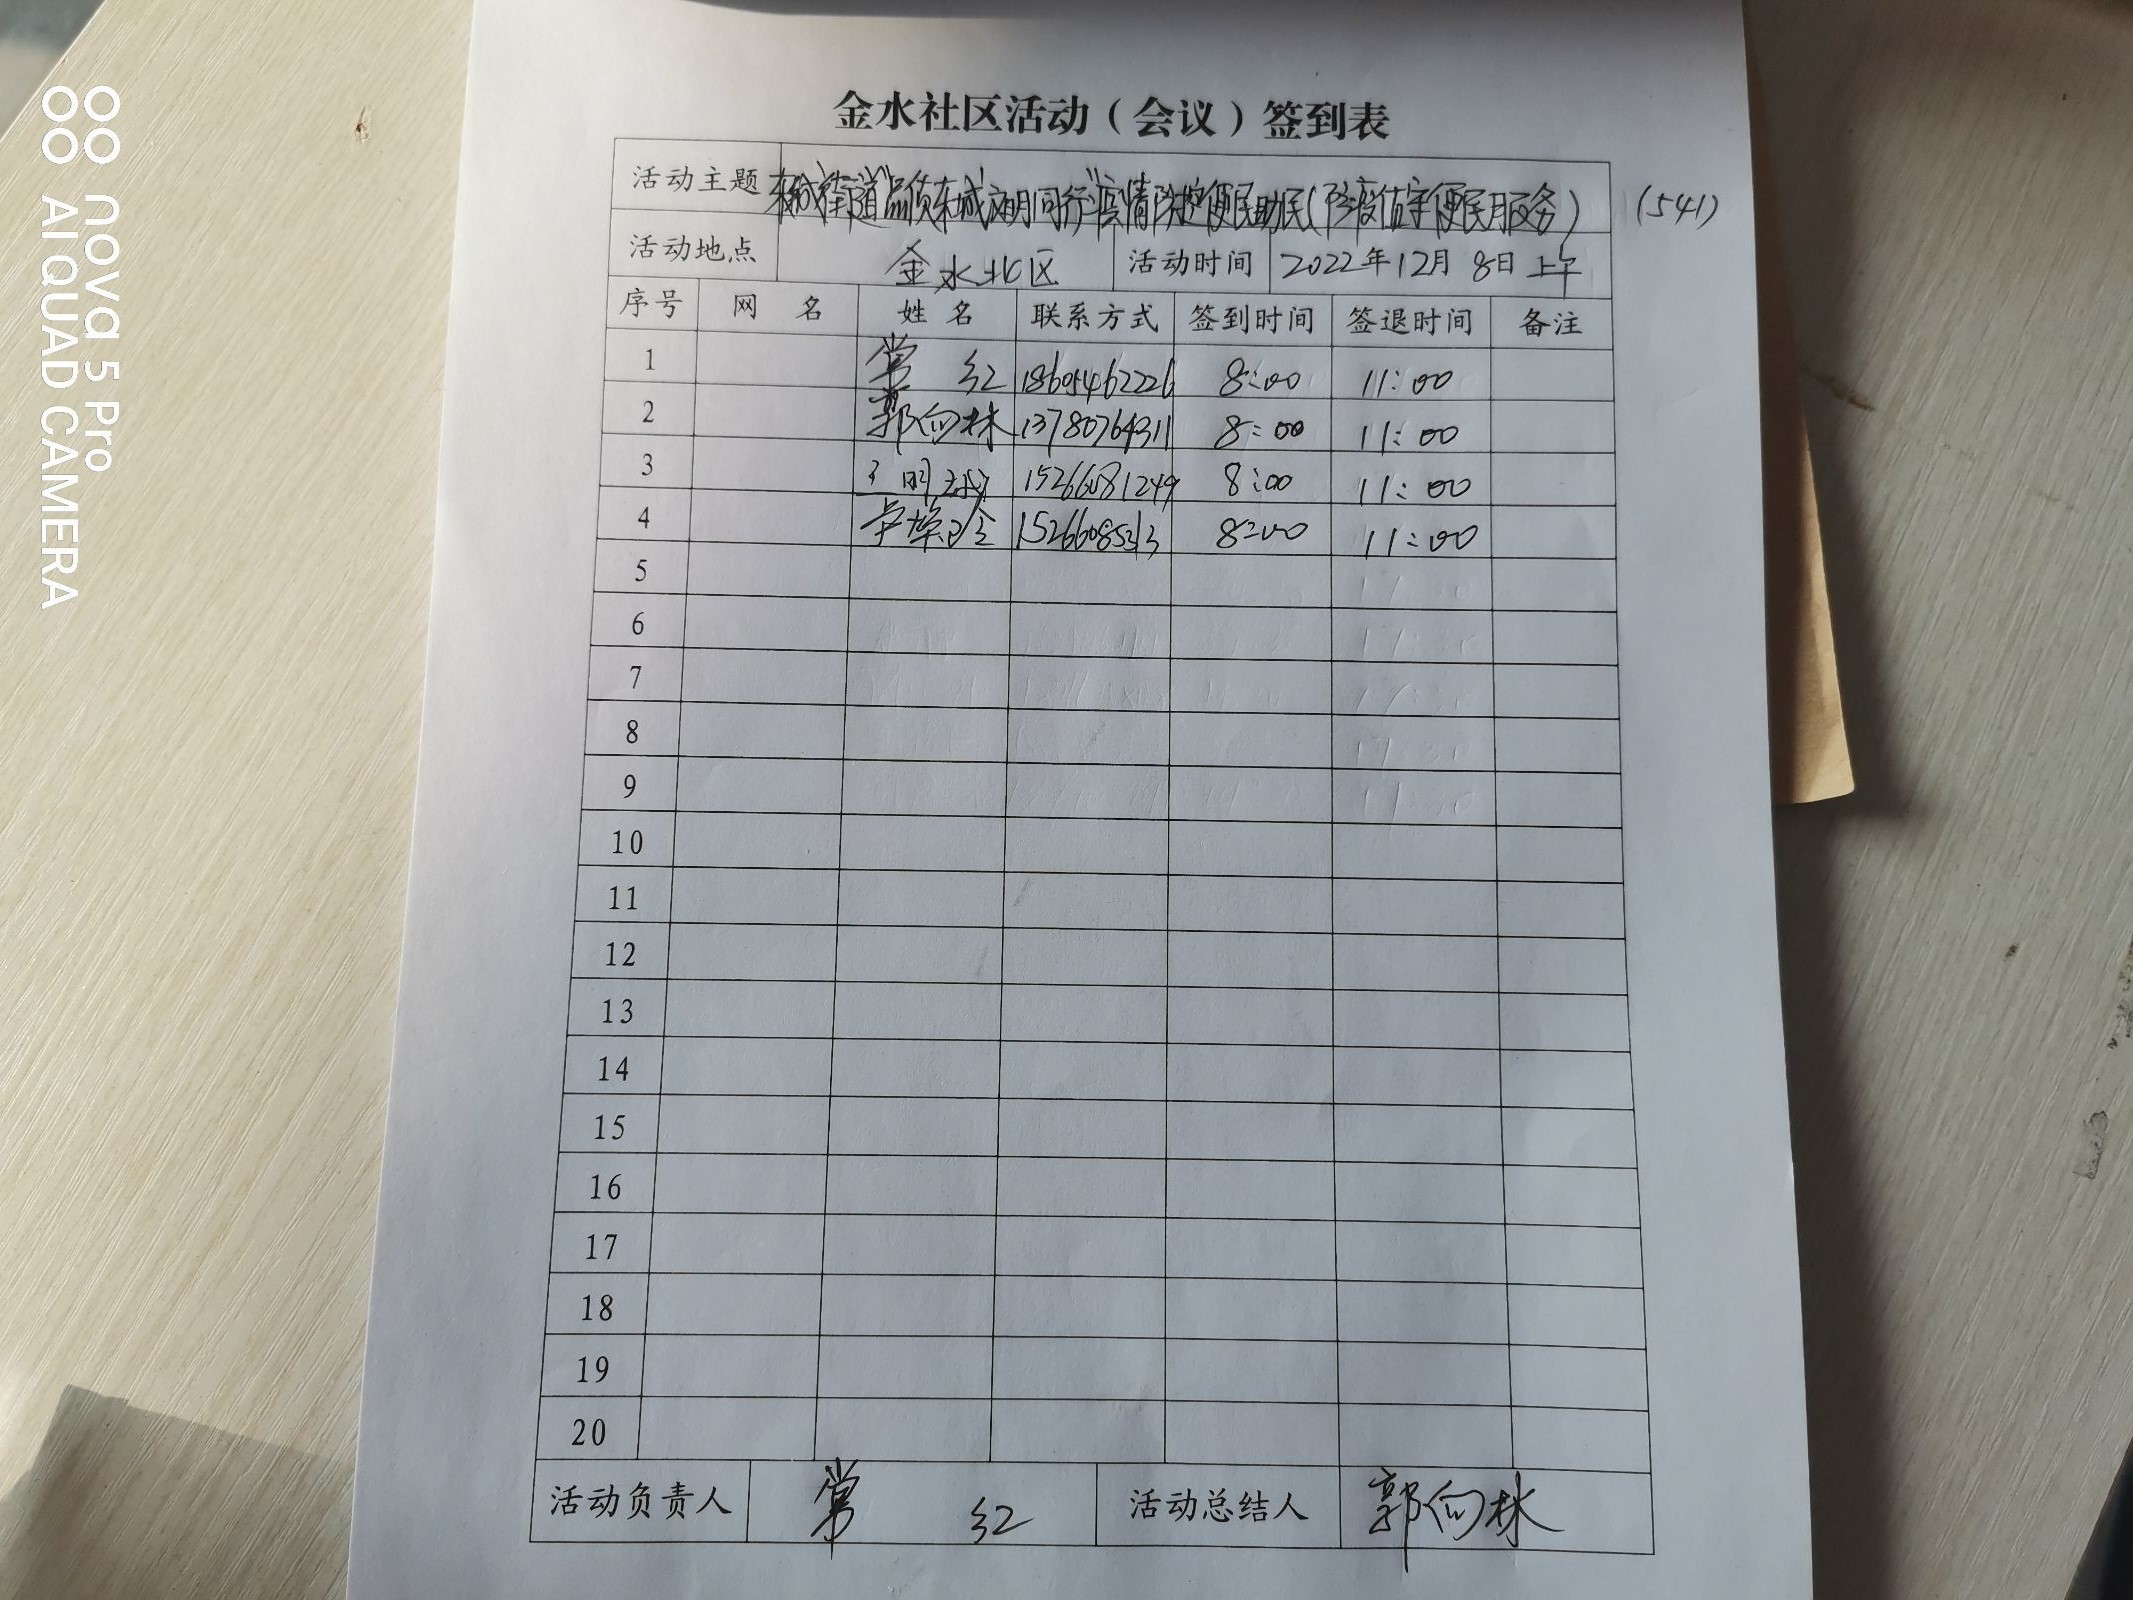 金水社区活动（会议）签到表
活动主题 东城街道"品质东城文明同行"疫情防控便民助民(防疫值守便民服务) (541)
活动地点 金水北区 活动时间 2022年12月8日上午
序号 网 名 姓 名 联系方式 签到时间 签退时间 备注
1 常 红 18605462226 8:00 11:00
2 郭向林 13780764311 8:00 11:00
3 15266081249 8:00 11:00
4 8:00 11:00
5
6
7
8
9
10
11
12
13
14
15
16
17
18
19
20
活动负责人 常 红 活动总结人 郭向林
nova 5 Pro
AI QUAD CAMERA